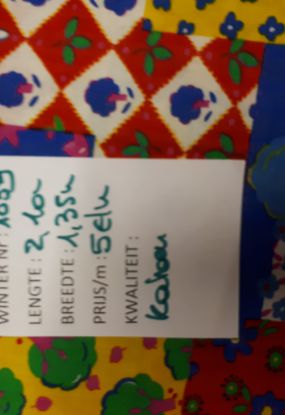 WINTER NR : 1009
LENGTE : 2,10m
BREEDTE : 1,35m
PRIJS/m : 5€/m
KWALITEIT :
Katoen